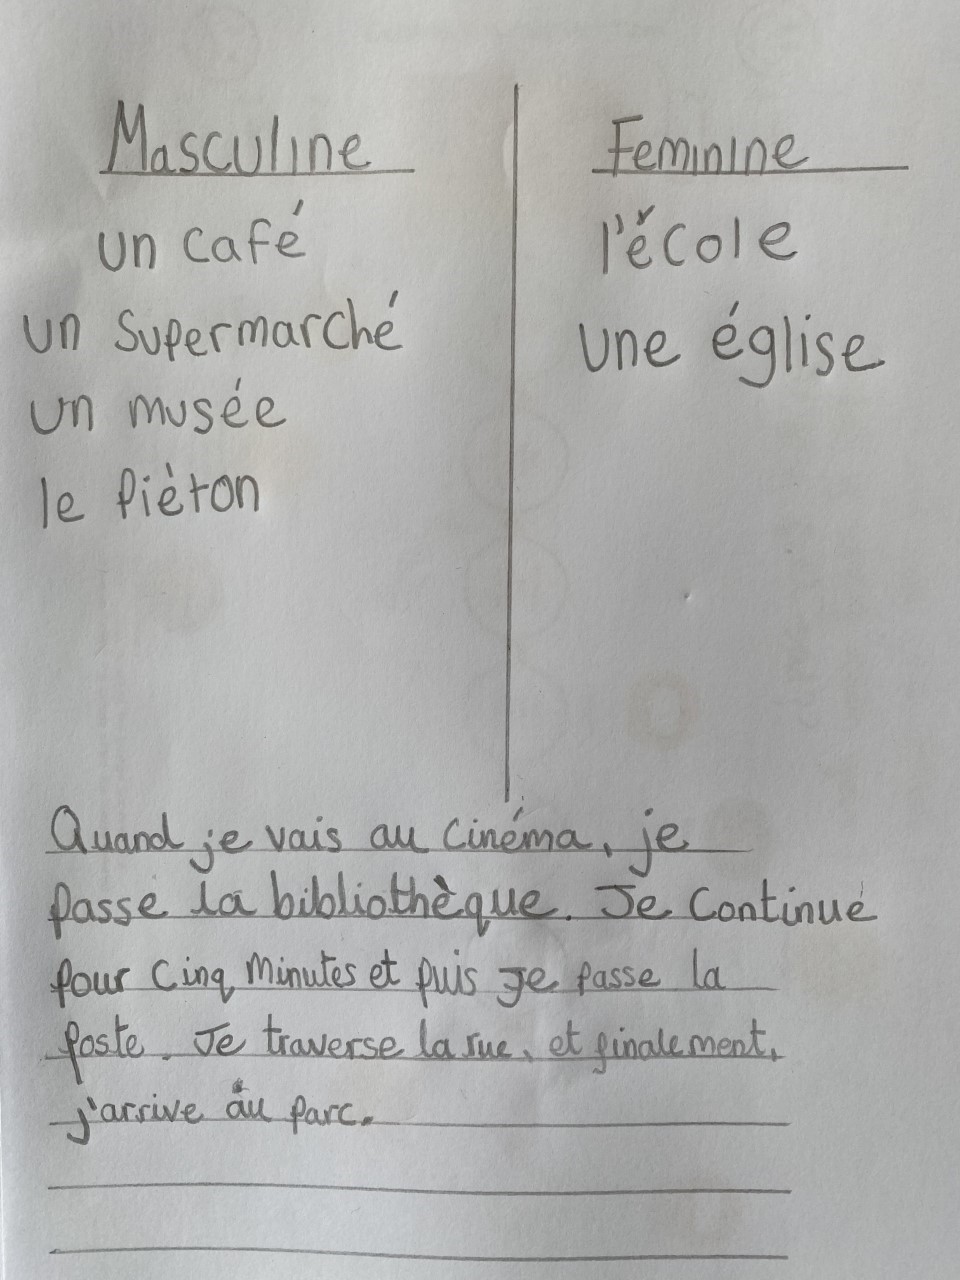 Masculine
Feminine
un café
un Supermarché
un musée
le pièton
l'école
une église
Quand je vais au Cinéma, je
passe la bibliothèque. Je Continue
pour Cinq minutes et puis Je passe la
poste. Je traverse la rue, et finalement,
j'arrive au parc.